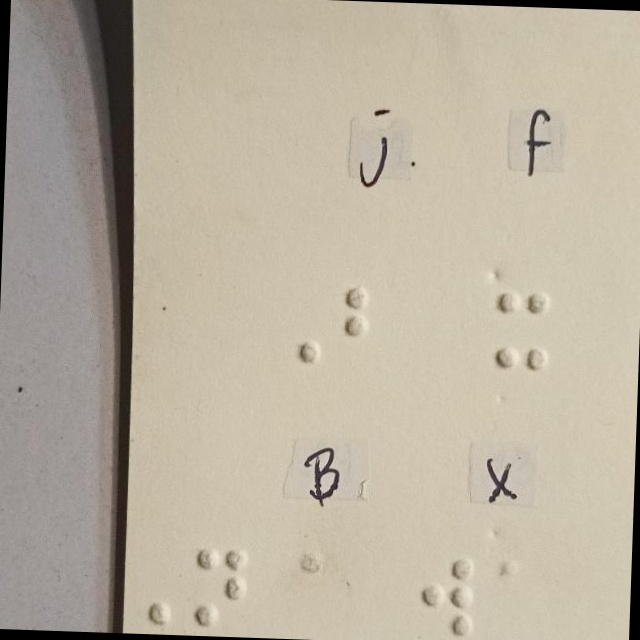 j. f
⠠⠃ ⠭
B x
⠠⠝ ⠁ ⠺